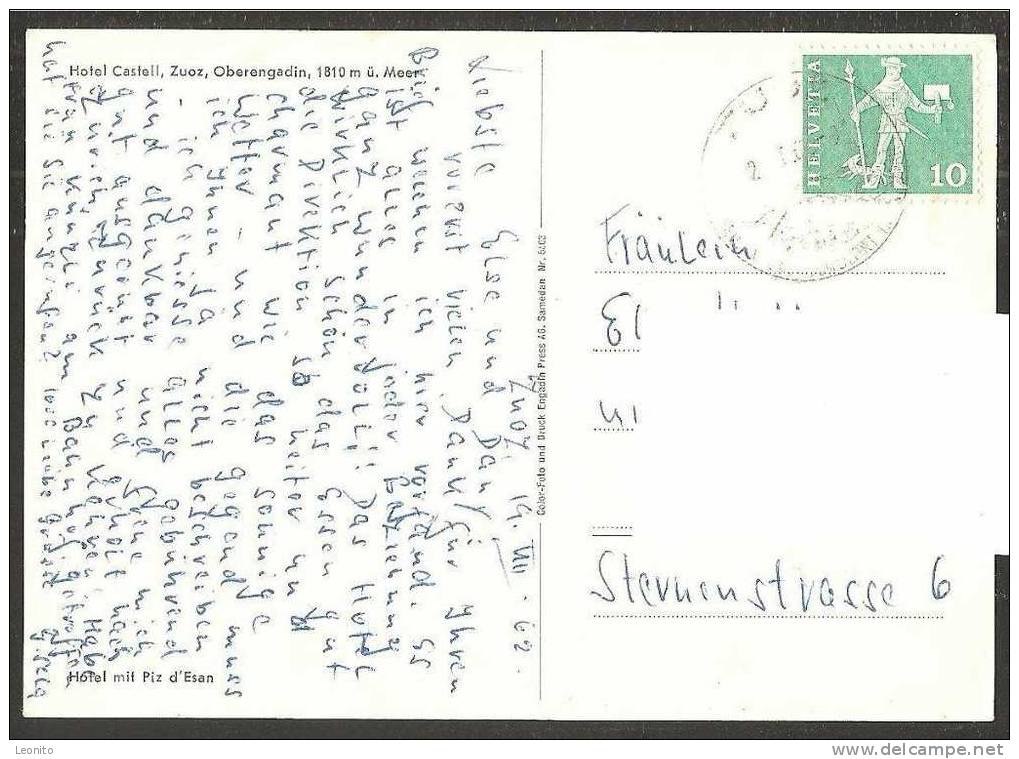 Hotel Castell, Zuoz, Oberengadin, 1810 m ü. Meer
Zuoz 14. VII. 62.
Liebste Else und
vorerst vielen Dank für Ihren
Brief welchen ich hier vorfand. Es
ist alles in jeder Beziehung
ganz wundervoll! Das Hotel
wirklich schön, das Essen gut
die Direktion so heiter und
charmant wie das sonnige
Wetter - und die Gegend muss
ich Ihnen ja nicht beschreiben
- ich geniesse alles gebührend
und dankbar und freue mich
gut ausgeruht und erholt nach
Zürich zurück zu kehren. Habe
Frln Künzli am Bahnhof getroffen
hat sie sie angerufen? 1000 liebe Grüsse
Hotel mit Piz d'Esan
Color-Foto und Druck Engadin Press AG. Samedan Nr. 6463
HELVETIA
10
Fräulein
El
in
Sternenstrasse 6
Leonito
www.delcampe.net